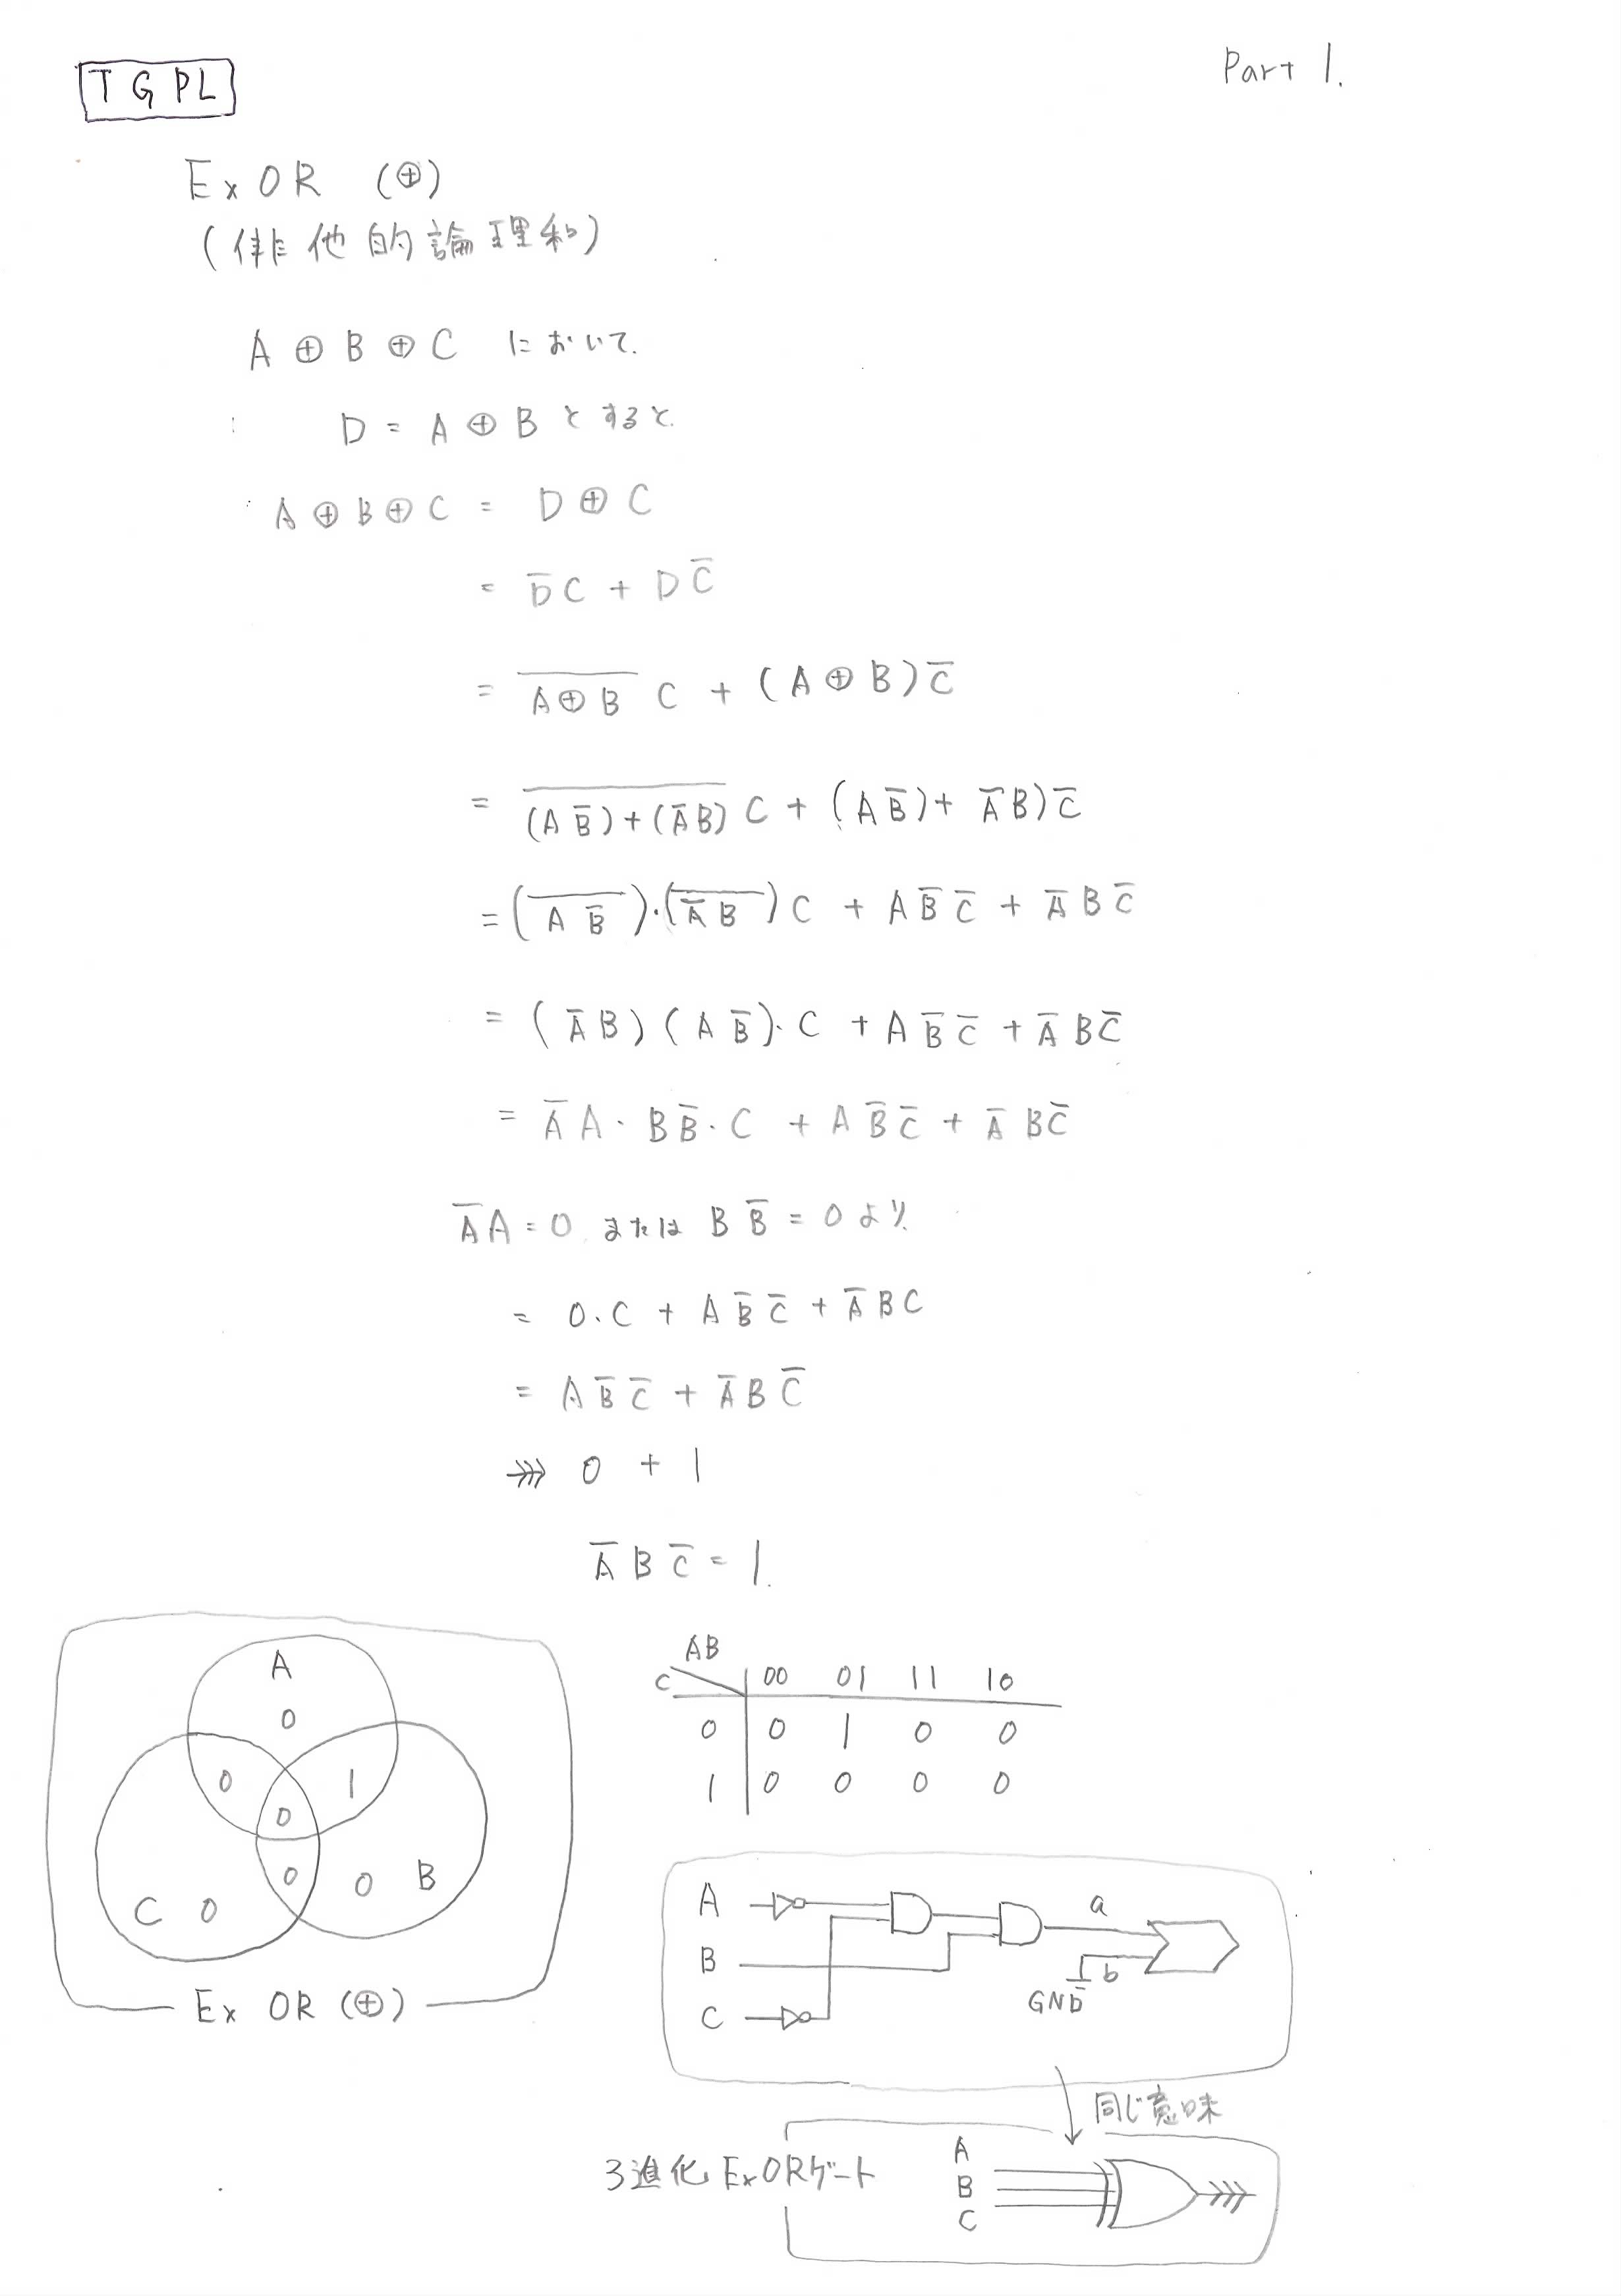 TGPL
Part 1.
ExOR (⊕)
(俳他的論理和)
A ⊕ B ⊕ C において.
D = A ⊕ B とすると.
A ⊕ B ⊕ C = D ⊕ C
= D̅C + DC̅
= \overline{A⊕B} C + (A ⊕ B)C̅
= \overline{(AB̅)+(A̅B)} C + (AB̅)+ A̅B)C̅
= (\overline{AB̅})·(\overline{A̅B})C + AB̅C̅ + A̅BC̅
= (A̅B)(AB̅)·C + AB̅C̅ + A̅BC̅
= A̅A·BB̅·C + AB̅C̅ + A̅BC̅
A̅A=0. または BB̅ = 0より.
= 0.C + AB̅C̅ + A̅BC
= AB̅C̅ + A̅BC̅
⋙ 0 + 1
A̅BC̅ = 1.
A
0
0 1
0
0 0 B
C 0
Ex OR (⊕)
AB
C 00 01 11 10
0 0 1 0 0
1 0 0 0 0
A a
B
b
GND
C
同じ意味
3進化ExORゲート
A
B
C